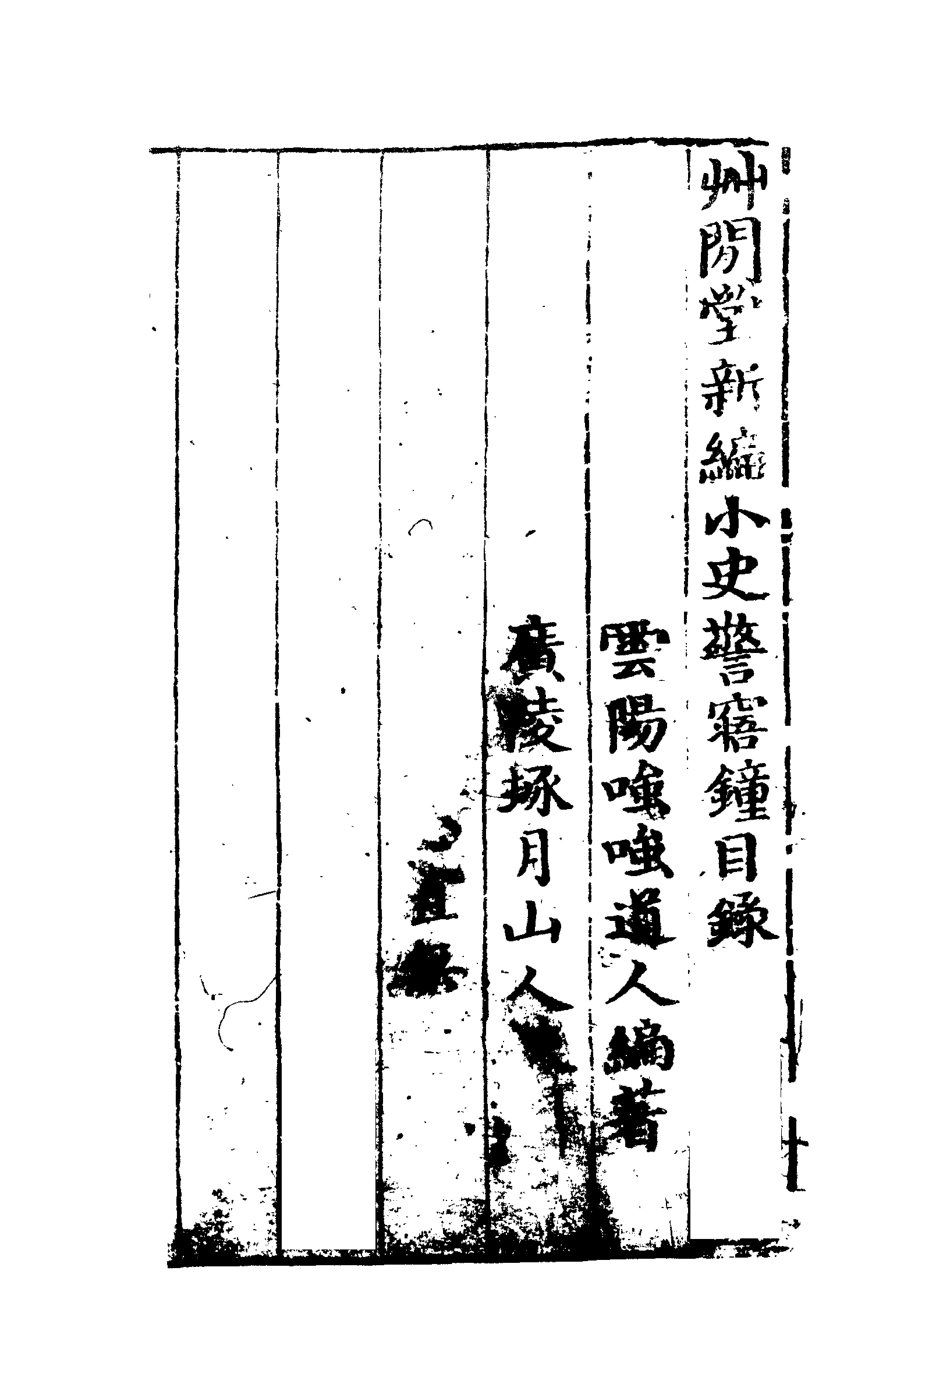 艸閒堂新編小史警寤鐘目錄
雲陽嗤嗤道人編著
廣陵琢月山人